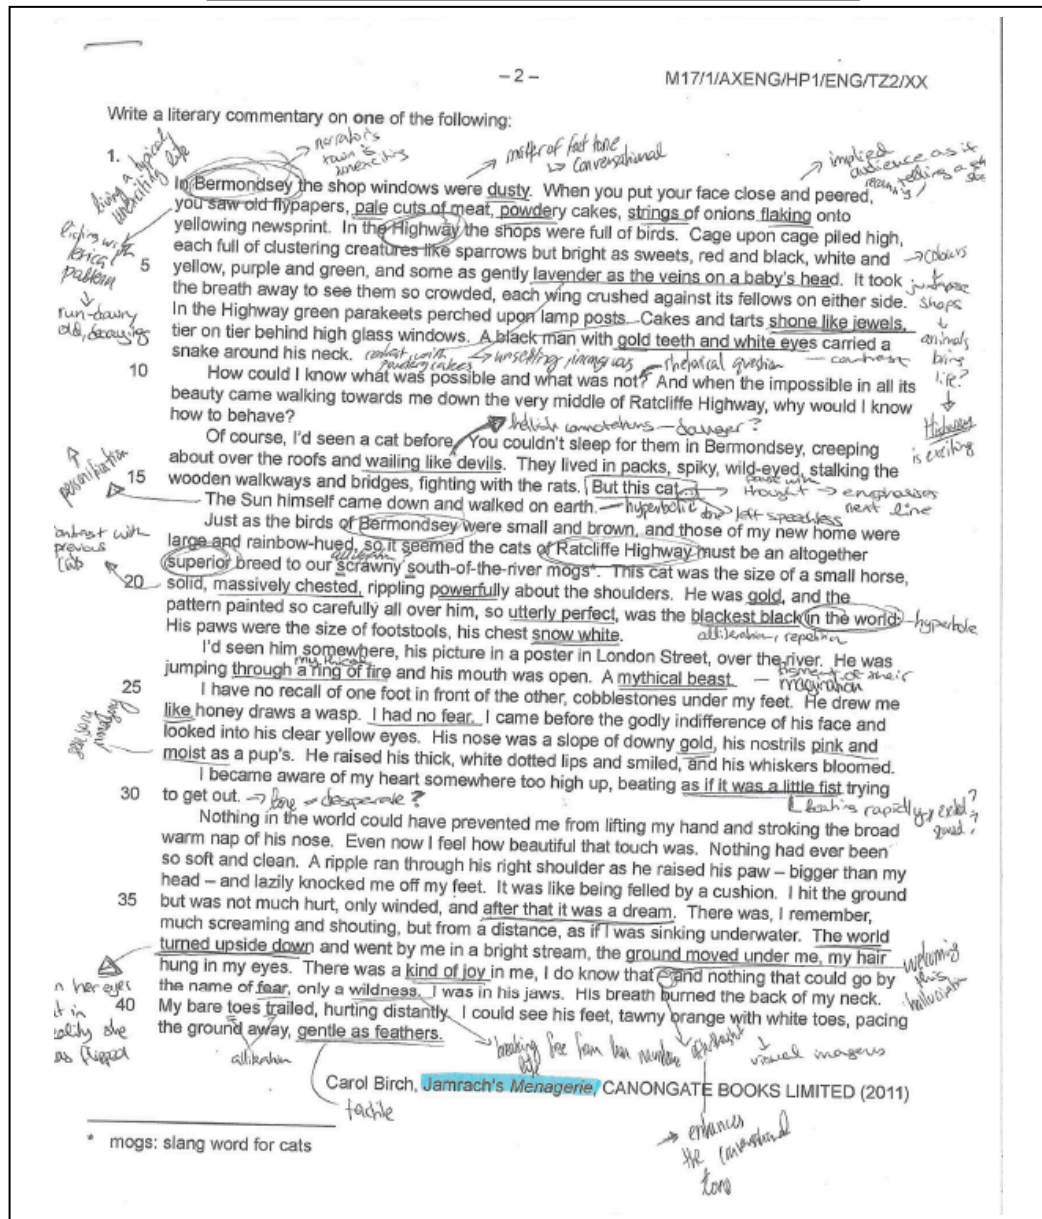 – 2 –
M17/1/AXENG/HP1/ENG/TZ2/XX
Write a literary commentary on one of the following:
1.
living a typically unexciting life
narrator's town is unexciting
matter of fact tone
↳ conversational
→ implied audience as if telling a
In Bermondsey the shop windows were dusty. When you put your face close and peered,
you saw old flypapers, pale cuts of meat, powdery cakes, strings of onions flaking onto
yellowing newsprint. In the Highway the shops were full of birds. Cage upon cage piled high,
each full of clustering creatures like sparrows but bright as sweets, red and black, white and
5 yellow, purple and green, and some as gently lavender as the veins on a baby's head. It took
the breath away to see them so crowded, each wing crushed against its fellows on either side.
In the Highway green parakeets perched upon lamp posts. Cakes and tarts shone like jewels,
tier on tier behind high glass windows. A black man with gold teeth and white eyes carried a
snake around his neck.
listing with lexical pattern
↓
run-down, old, decaying
→ colours
juxtapose shops
↓
animals bring life?
↓
Highway is exciting
contrast with powdery cakes
unsettling imagery
rhetorical question
– contrast
10 How could I know what was possible and what was not? And when the impossible in all its
beauty came walking towards me down the very middle of Ratcliffe Highway, why would I know
how to behave?
hellish connotations – danger?
Of course, I'd seen a cat before. You couldn't sleep for them in Bermondsey, creeping
about over the roofs and wailing like devils. They lived in packs, spiky, wild-eyed, stalking the
15 wooden walkways and bridges, fighting with the rats. But this cat...
pause with thought → emphasises next line
personification
The Sun himself came down and walked on earth.
– hyperbolic
left speechless
Just as the birds of Bermondsey were small and brown, and those of my new home were
large and rainbow-hued, so it seemed the cats of Ratcliffe Highway must be an altogether
superior breed to our scrawny south-of-the-river mogs*. This cat was the size of a small horse,
20 solid, massively chested, rippling powerfully about the shoulders. He was gold, and the
pattern painted so carefully all over him, so utterly perfect, was the blackest black in the world.
His paws were the size of footstools, his chest snow white.
contrast with previous cats
alliteration
– hyperbole
alliteration, repetition
I'd seen him somewhere, his picture in a poster in London Street, over the river. He was
jumping through a ring of fire and his mouth was open. A mythical beast.
mythical
– figment of their imagination
25 I have no recall of one foot in front of the other, cobblestones under my feet. He drew me
like honey draws a wasp. I had no fear. I came before the godly indifference of his face and
looked into his clear yellow eyes. His nose was a slope of downy gold, his nostrils pink and
moist as a pup's. He raised his thick, white dotted lips and smiled, and his whiskers bloomed.
sensory imagery
I became aware of my heart somewhere too high up, beating as if it was a little fist trying
30 to get out.
desperate?
beating rapidly
Nothing in the world could have prevented me from lifting my hand and stroking the broad
warm nap of his nose. Even now I feel how beautiful that touch was. Nothing had ever been
so soft and clean. A ripple ran through his right shoulder as he raised his paw – bigger than my
head – and lazily knocked me off my feet. It was like being felled by a cushion. I hit the ground
35 but was not much hurt, only winded, and after that it was a dream. There was, I remember,
much screaming and shouting, but from a distance, as if I was sinking underwater. The world
turned upside down and went by me in a bright stream, the ground moved under me, my hair
hung in my eyes. There was a kind of joy in me, I do know that – and nothing that could go by
the name of fear, only a wildness. I was in his jaws. His breath burned the back of my neck.
40 My bare toes trailed, hurting distantly. I could see his feet, tawny orange with white toes, pacing
the ground away, gentle as feathers.
welcoming this
in her eyes
alliteration
breaking free from
afterthought
visual imagery
tactile
→ enhances the conversational tone
Carol Birch, Jamrach's Menagerie, CANONGATE BOOKS LIMITED (2011)
* mogs: slang word for cats